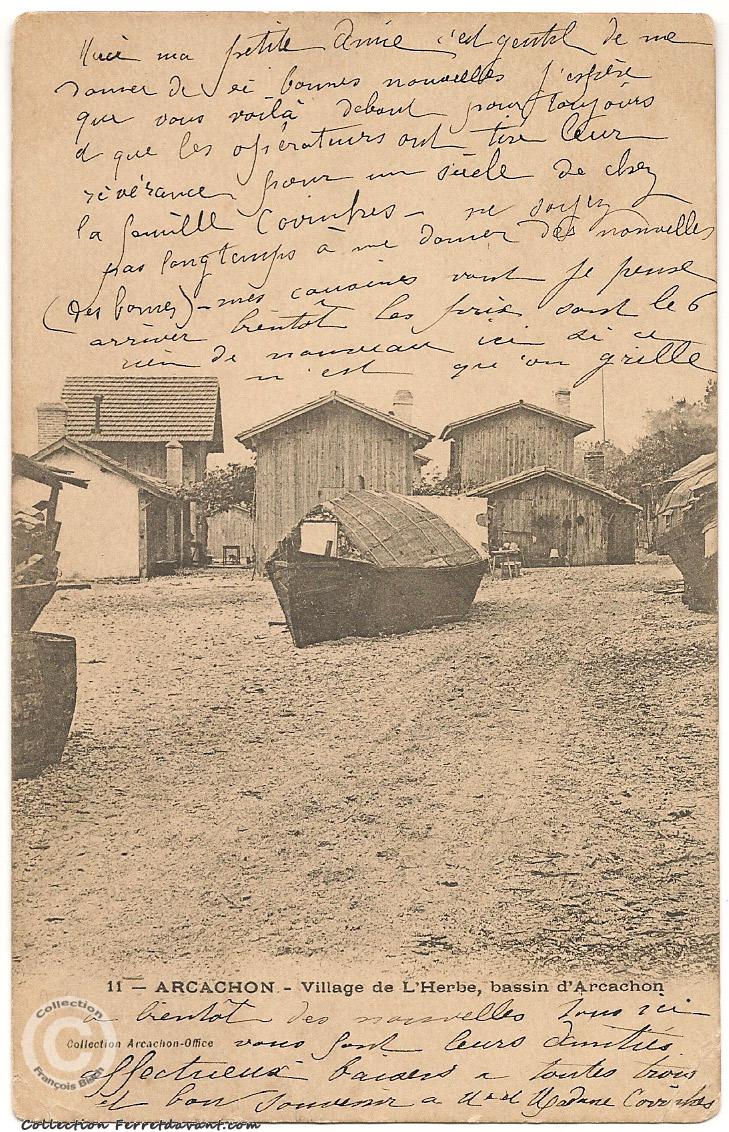 Merci ma petite Amie c'est gentil de me
donner de si bonnes nouvelles j'espère
que vous voilà debout pour toujours
et que les opérateurs ont tiré leur
révérance pour un siècle de chez
la famille – ne soyez
pas longtemps à me donner des nouvelles
(des bonnes) – mes cousines vont je pense
arriver bientôt les prix sont le 6
rien de nouveau ici si ce
n'est qu'on grille
11 — ARCACHON. - Village de L'Herbe, bassin d'Arcachon
a bientôt des nouvelles tous ici
Collection Arcachon-Office
vous font leurs amitiés
affectueux baisers a toutes trois
et bon souvenir a Madame
Collection
C
François Bisch
Collection Ferretdavant.com